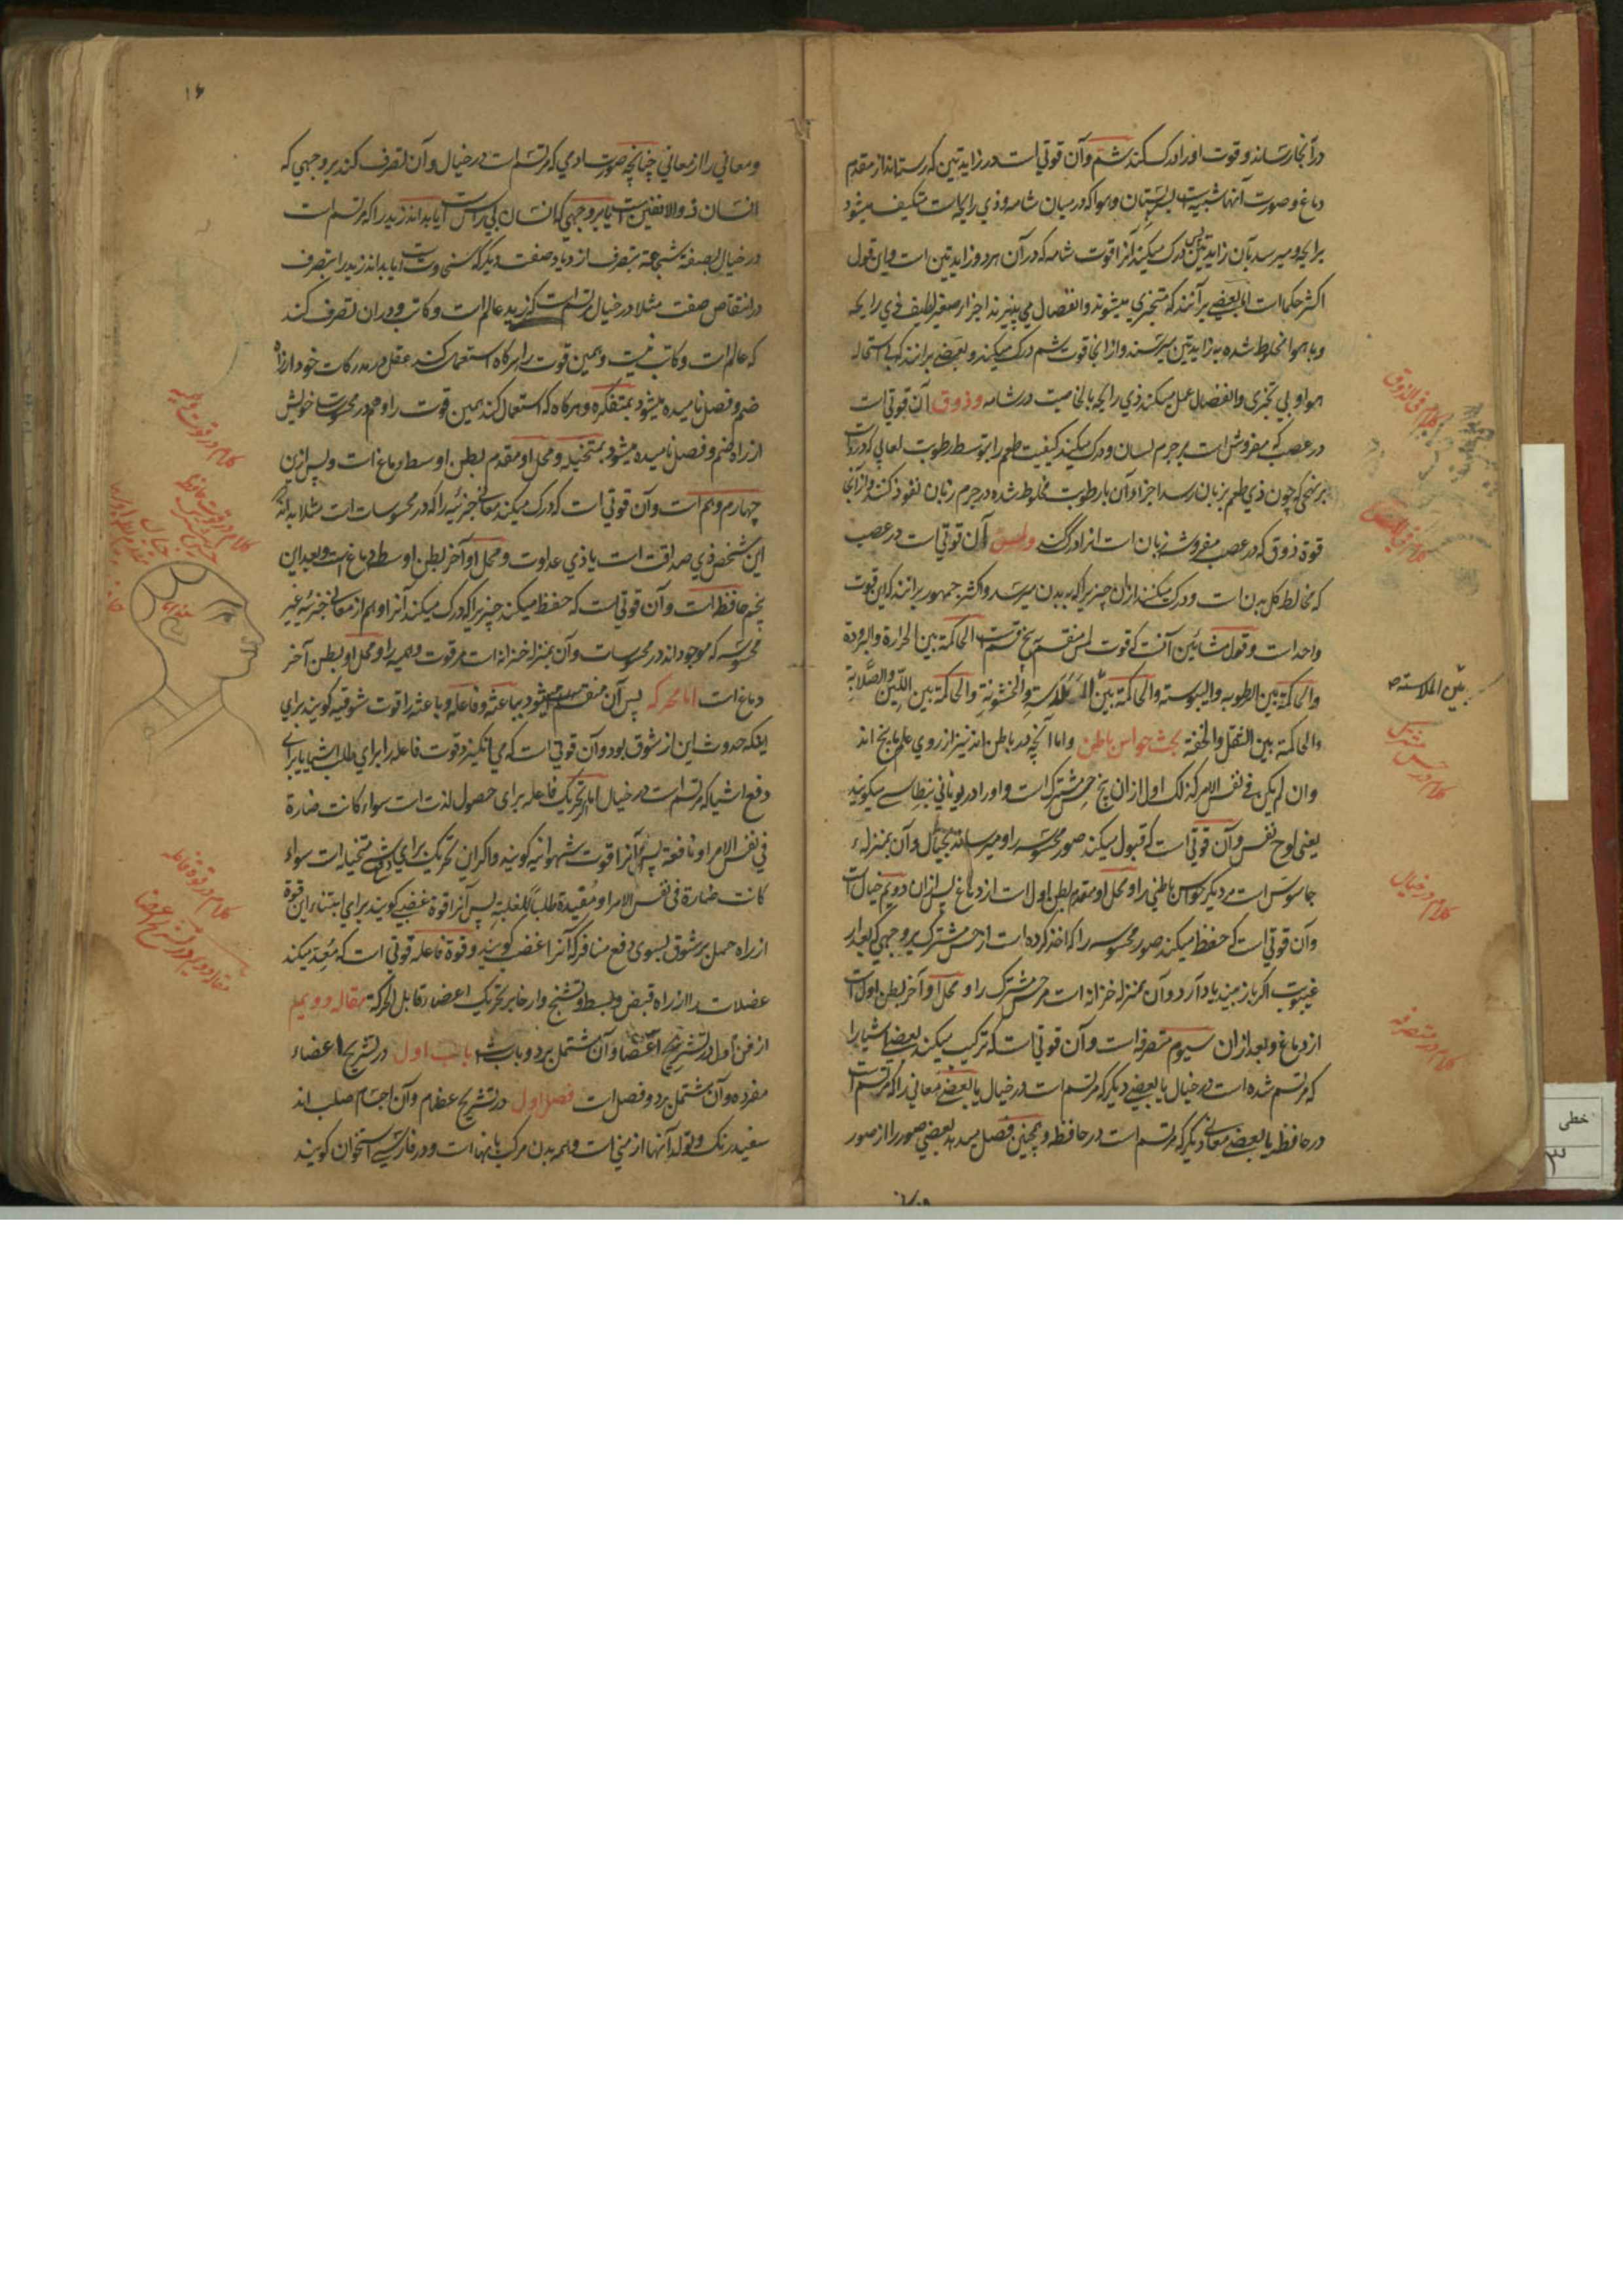 درآنجا رساند و قوت او را درک کند شم و آن قوتی است در زایدتین که رسته‌اند از مقدم
دماغ و صورت آنها شبیه است بسر پستان و هوا که در میان شامه و ذی رایحه است متکیف میشود
برایحه و میرسد بآن زایدتین پس درک میکند آنرا قوت شامه که در آن هر دو زایدتین است و این قول
اکثر حکما است اما بعضی برآنند که متجزی میشوند و انفصال می پذیرند اجزار صغیر لطیف ذی رایحه
و با هوا مخلوط شده به زایدتین میرسند و از انجا قوت شم درک میکند و بعضی برانند که بی استحاله
هوا و بی تجزی و انفصال عمل میکند ذی رایحه بالخاصیت در شامه و ذوق آن قوتی است
در عصب که مفروش است بر جرم لسان و درک میکند کیفیت طعم را بتوسط رطوبت لعابی که در آنست
بر نهجی که چون ذی طعم بزبان رسد اجزاء آن با رطوبت مخلوط شده در جرم زبان نفوذ کند و از آنجا
قوة ذوق که در عصب مفروشه زبان است انرا درک کند و لمس آن قوتی است در عصب
که مخالط کل بدن است و درک میکند ازان چیزیرا که به بدن میرسد و اکثر جمهور برانند که این قوت
واحد است و قول مشائین آنست که قوت لمس منقسم به پنج قسم است الحاکمة بین الحرارة والبرودة
والحاکمة بین الرطوبه والیبوسته والحاکمة بین الملاسة والخشونة والحاکمة بین اللین والصلابة
والحاکمة بین الثقل والخفة بحث حواس باطن و اما آنچه در باطن اند نیز از روی علم ما پنج اند
وان لم یکن فی نفس الامر کذلک اول ازان پنج حس مشترک است و او را در یونانی بنطاسیا میکویند
یعنی لوح نفس و آن قوتی است که قبول میکند صور محسوسه را و میرساند بخیال و آن بمنزلهء
جاسوس است مر دیگر حواس باطنی را و محل او مقدم بطن اول است از دماغ پس ازان دویم خیال است
و آن قوتی است که حفظ میکند صور محسوسه را که اخذ کرده است از حس مشترک بر وجهی که بعد از
غیبوبت اگر باز بیند یاد آرد و آن بمنزله خزانه است مر حس مشترک را و محل او آخر بطن اول است
از دماغ و بعد ازان سیوم متصرفه است و آن قوتی است که ترکیب میکند بعضی اشیا را
که مرتسم شده است در خیال با بعضی دیگر که مرتسم است در خیال یا بعضی معانی را که مرتسم است
در حافظه با بعضی معانی دیگر که مرتسم است در حافظه و همچنین فصل میدهد بعضی صور را از صور
کلام فی الذوق
کلام فی اللمس
بین الملاسته
کلام در حس مشترک
کلام در خیال
کلام در متصرفه
خطی
۳
۱۶
و معانی را از معانی چنانچه صورت آدمی که مرتسم است در خیال و آن تصرف کند بر وجهی که
انسان ذو الانفین است یا بر وجهی که انسان بی راس است یا بداند زید را که مرتسم است
در خیال بصفة شجاعة بتصرف ازدیاد صفت دیگر که سخی و ست یا بداند زید را بتصرف
در انتقاص صفت مثلا در خیال مرتسم است که زید عالم است و کاتب و در ان تصرف کند
که عالم است و کاتب نیست و همین قوت را هرگاه استعمال کند عقل در مدرکات خود از راه
ضم و فصل نامیده میشود بمتفکره و هرگاه که استعمال کند همین قوت را وهم در محسوسات خویش
از راه ضم و فصل نامیده میشود بمتخیله و محل او مقدم بطن اوسط دماغ است و پس ازین
چهارم وهم است و آن قوتی است که درک میکند معانی جزئیه را که در محسوسات است مثلا بداند که
این شخص ذی صداقت است یا ذی عداوت و محل او آخر بطن اوسط دماغ است و بعد این
پنجم حافظه است و آن قوتی است که حفظ میکند چیزیرا که درک میکند آنرا وهم از معانی جزئیه غیر
محسوسه که موجوداند در محسوسات و آن بمنزله خزانه است مر قوت وهمیه را و محل او بطن آخر
دماغ است اما محرکه پس آن منقسم میشود بباعثه و فاعله و باعثه را قوت شوقیه کویند برای
اینکه حدوث این از شوق بود و آن قوتی است که می انگیزد قوت فاعله را برای طلب اشیا یا برای
دفع اشیا که مرتسم است در خیال اما اگر تحریک فاعله برای حصول لذت است سواء کانت ضارة
فی نفس الامر او نافعة پس آنرا قوت شهوانیه کویند و اگر آن تحریک برای دفع شی متخیله است سواء
کانت ضارة فی نفس الامر او مفیدة طلباً للغلبة پس آنرا قوة غضبی کویند برای ابتناء این قوة
از راه حمل بر شوق بسوی دفع منافر که آنرا غضب کویند و قوة فاعله قوتی است که معد میکند
عضلات را از راه قبض و بسط و تشنج و ارخا بر تحریک اعضاء قابل الحرکة مقاله دویم
از فن اول در تشریح اعضا و آن مشتمل بر دو باب است باب اول در تشریح اعضاء
مفرده و آن مشتمل بر دو فصل است فصل اول در تشریح عظام و آن اجسام صلب اند
سفید رنگ و تولد آنها از منی است و همه بدن مرکب بانها است و در فارسی استخوان کویند
کلام در قوت واهمه
کلام در قوت حافظه
حس مشترک
خیال
کلام در قوة فاعله
مقاله دویم در تشریح اعضا